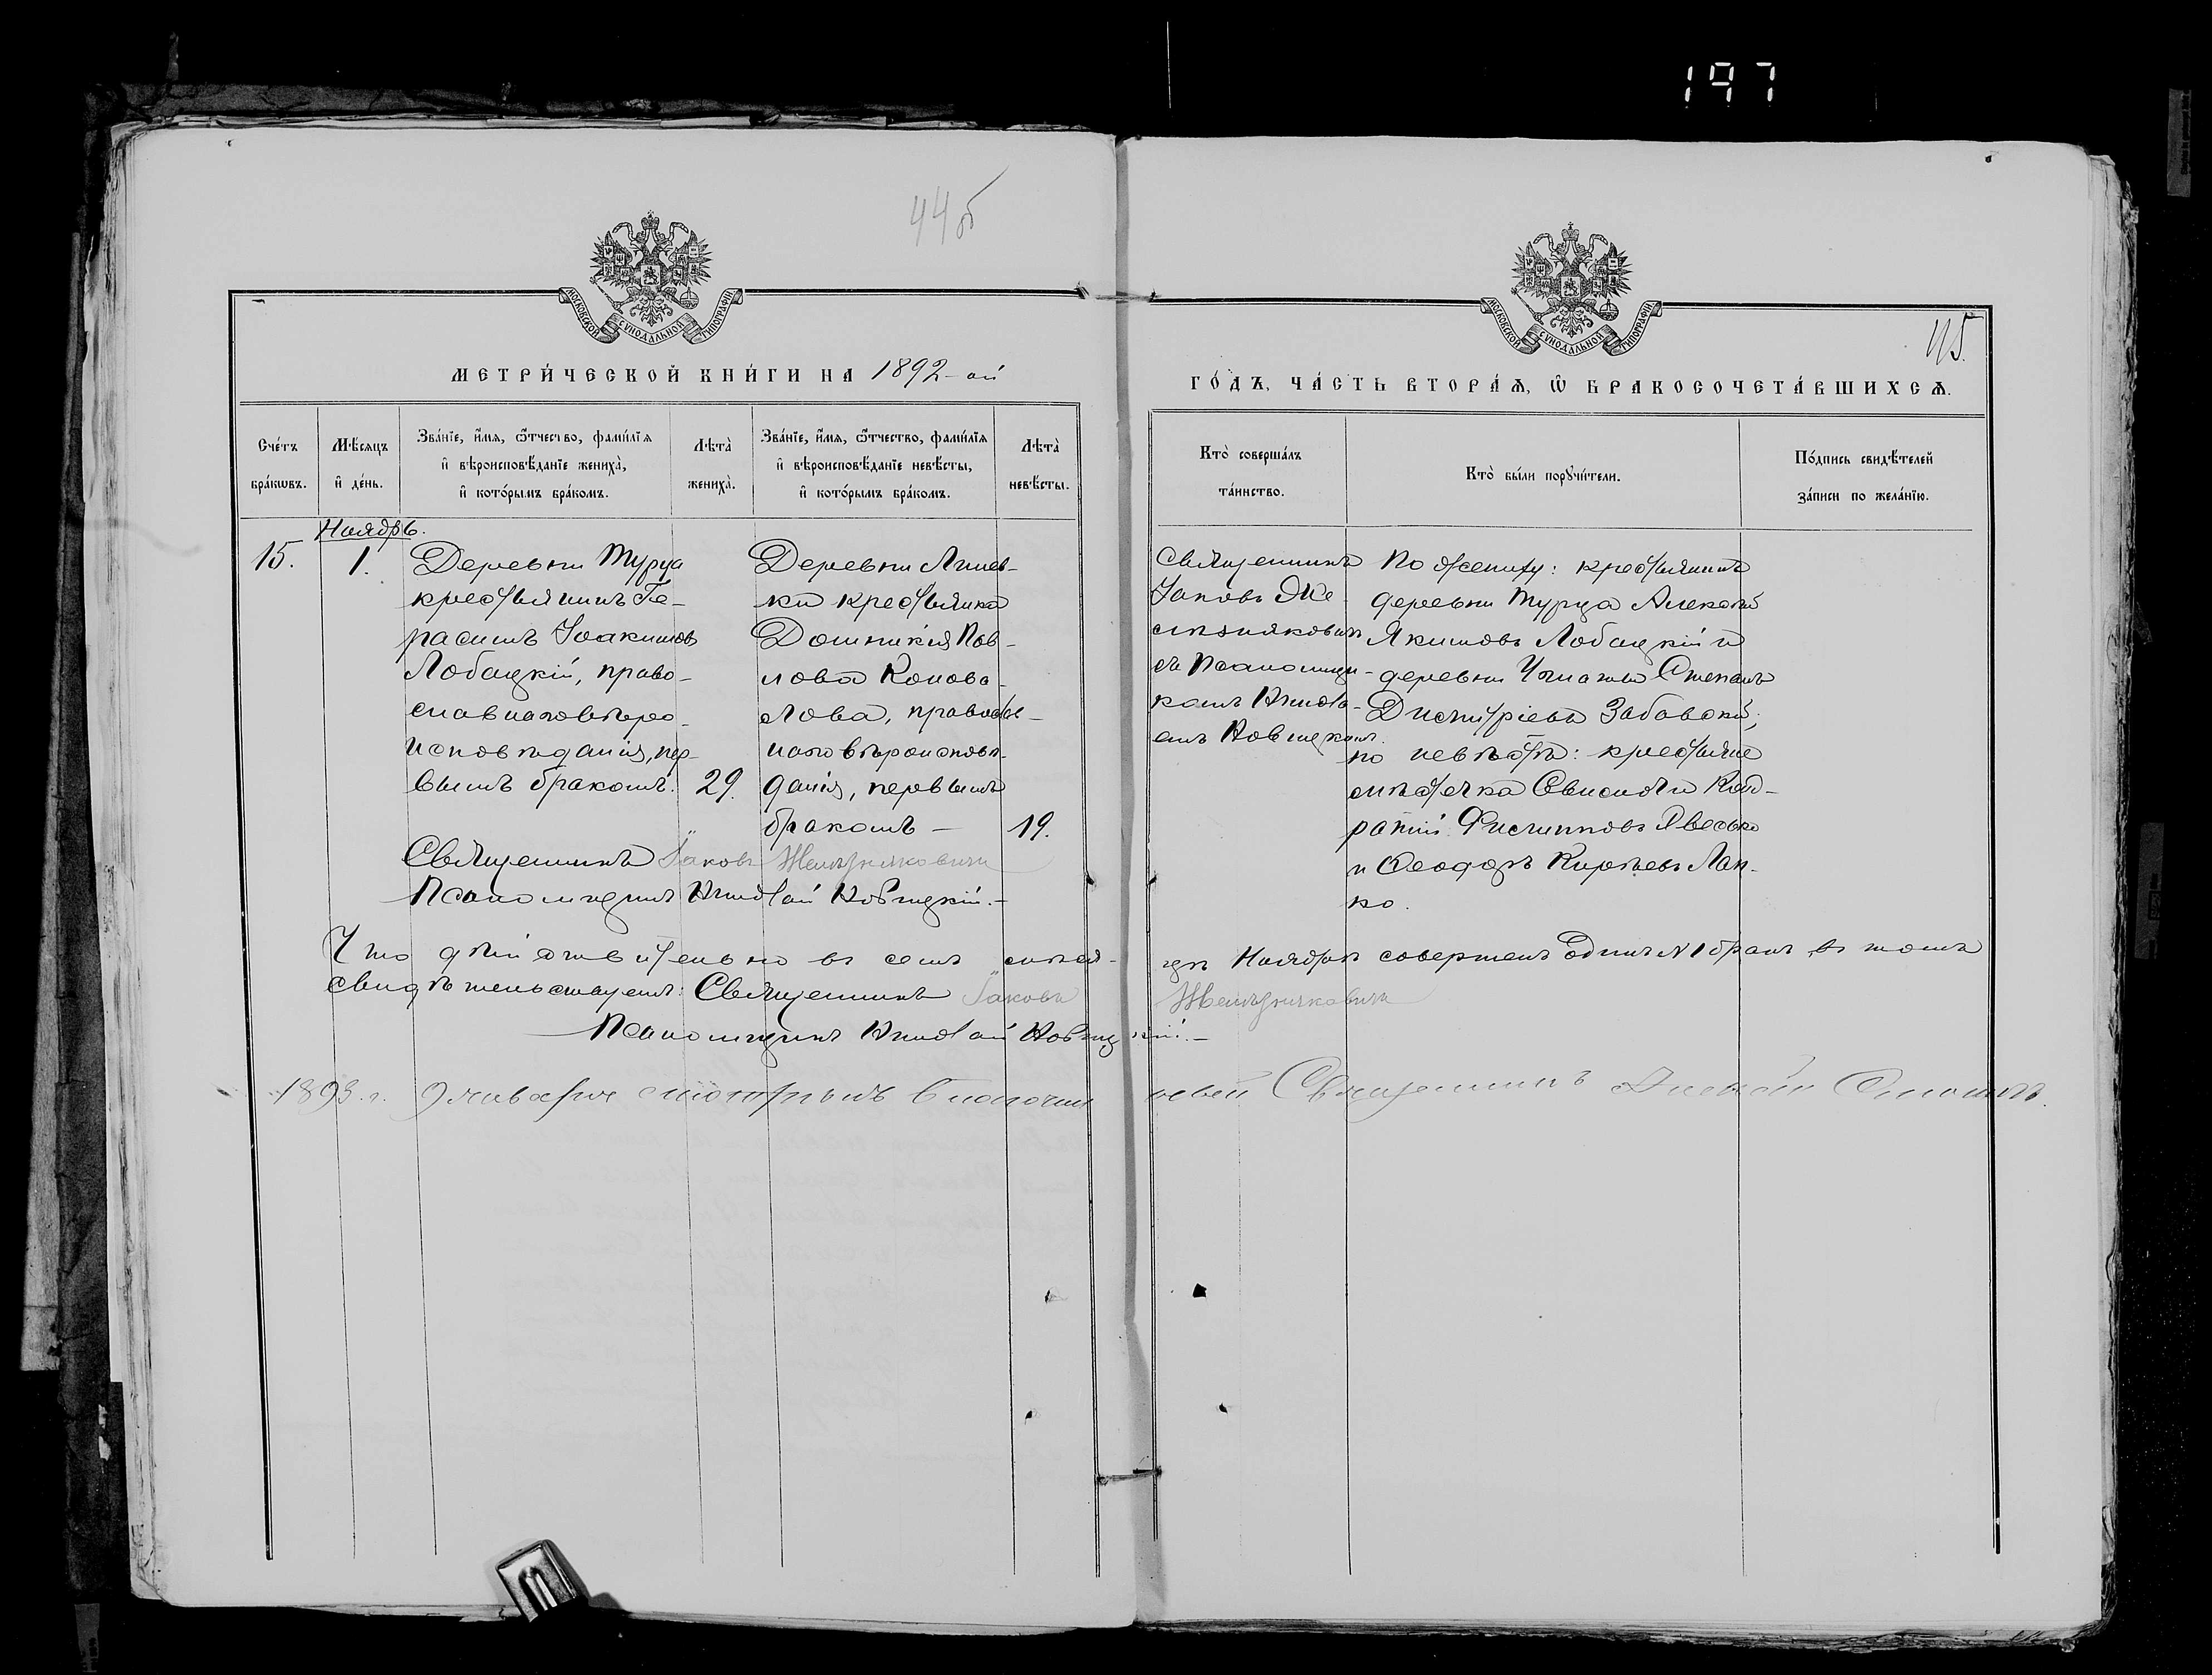 197
44об
115.
МОСКОВСКОЙ СѴНОДАЛЬНОЙ ТИПОГРАФІИ
МОСКОВСКОЙ СѴНОДАЛЬНОЙ ТИПОГРАФІИ
МЕТРИ́ЧЕСКОЙ КНИ́ГИ НА 1892-ой
ГО́ДЪ, ЧА́СТЬ ВТОРА́Ѧ, Ѽ БРАКОСОЧЕТА́ВШИХСѦ.
Сче́тъ
бра́кѡвъ.
Мѣ́сяцъ
и҆ де́нь.
Зва́нїе, и҆́мя, ѻ҆́тчество, фами́лїя
и҆ вѣроисповѣ́данїе жениха̀,
и҆ кото́рымъ бра́комъ.
Лѣта̀
жениха̀.
Зва́нїе, и҆́мя, ѻ҆́тчество, фами́лїя
и҆ вѣроисповѣ́данїе невѣ́сты,
и҆ кото́рымъ бра́комъ.
Лѣта̀
невѣ́сты.
Кто̀ соверша́лъ
та́инство.
Кто̀ бы́ли порꙋчи́тели.
По́дпись свидѣ́телей
за́писи по жела́нїю.
Ноябрь.
15.
1.
Деревни Турца
крестьянинъ Ге-
расимъ Іоакимовъ
Лобацкій, право-
славнаго вѣро-
исповѣданія, пер-
вымъ бракомъ.
29.
Деревни
ки крестьянка
Домникія Пав-
лова Конова-
лова, православ-
наго вѣроисповѣ-
данія, первымъ
бракомъ —
19.
Священникъ
Іаковъ
съ Псаломщи-
комъ Никола-
емъ Новицкимъ.
По женихѣ: крестьянинъ
деревни Турца Алексѣй
Якимовъ Лобацкій и
деревни Степанъ
Димитріевъ Забавскій;
по невѣстѣ: крестьяне
мѣстечка Свислочи Конд-
ратій Филипповъ
и Ѳеодоръ Кирѣевъ Лап-
ко.
Священникъ Іаковъ
Псаломщикъ Николай Новицкій.—
Что дѣйствительно въ семъ мѣся-
цѣ Ноябрѣ совершенъ одинъ №1 бракъ, въ томъ
свидѣтельствуемъ: Священникъ Іаковъ
Псаломщикъ Николай Новицкій.—
1893 г. 9 января смотрѣлъ Священникъ